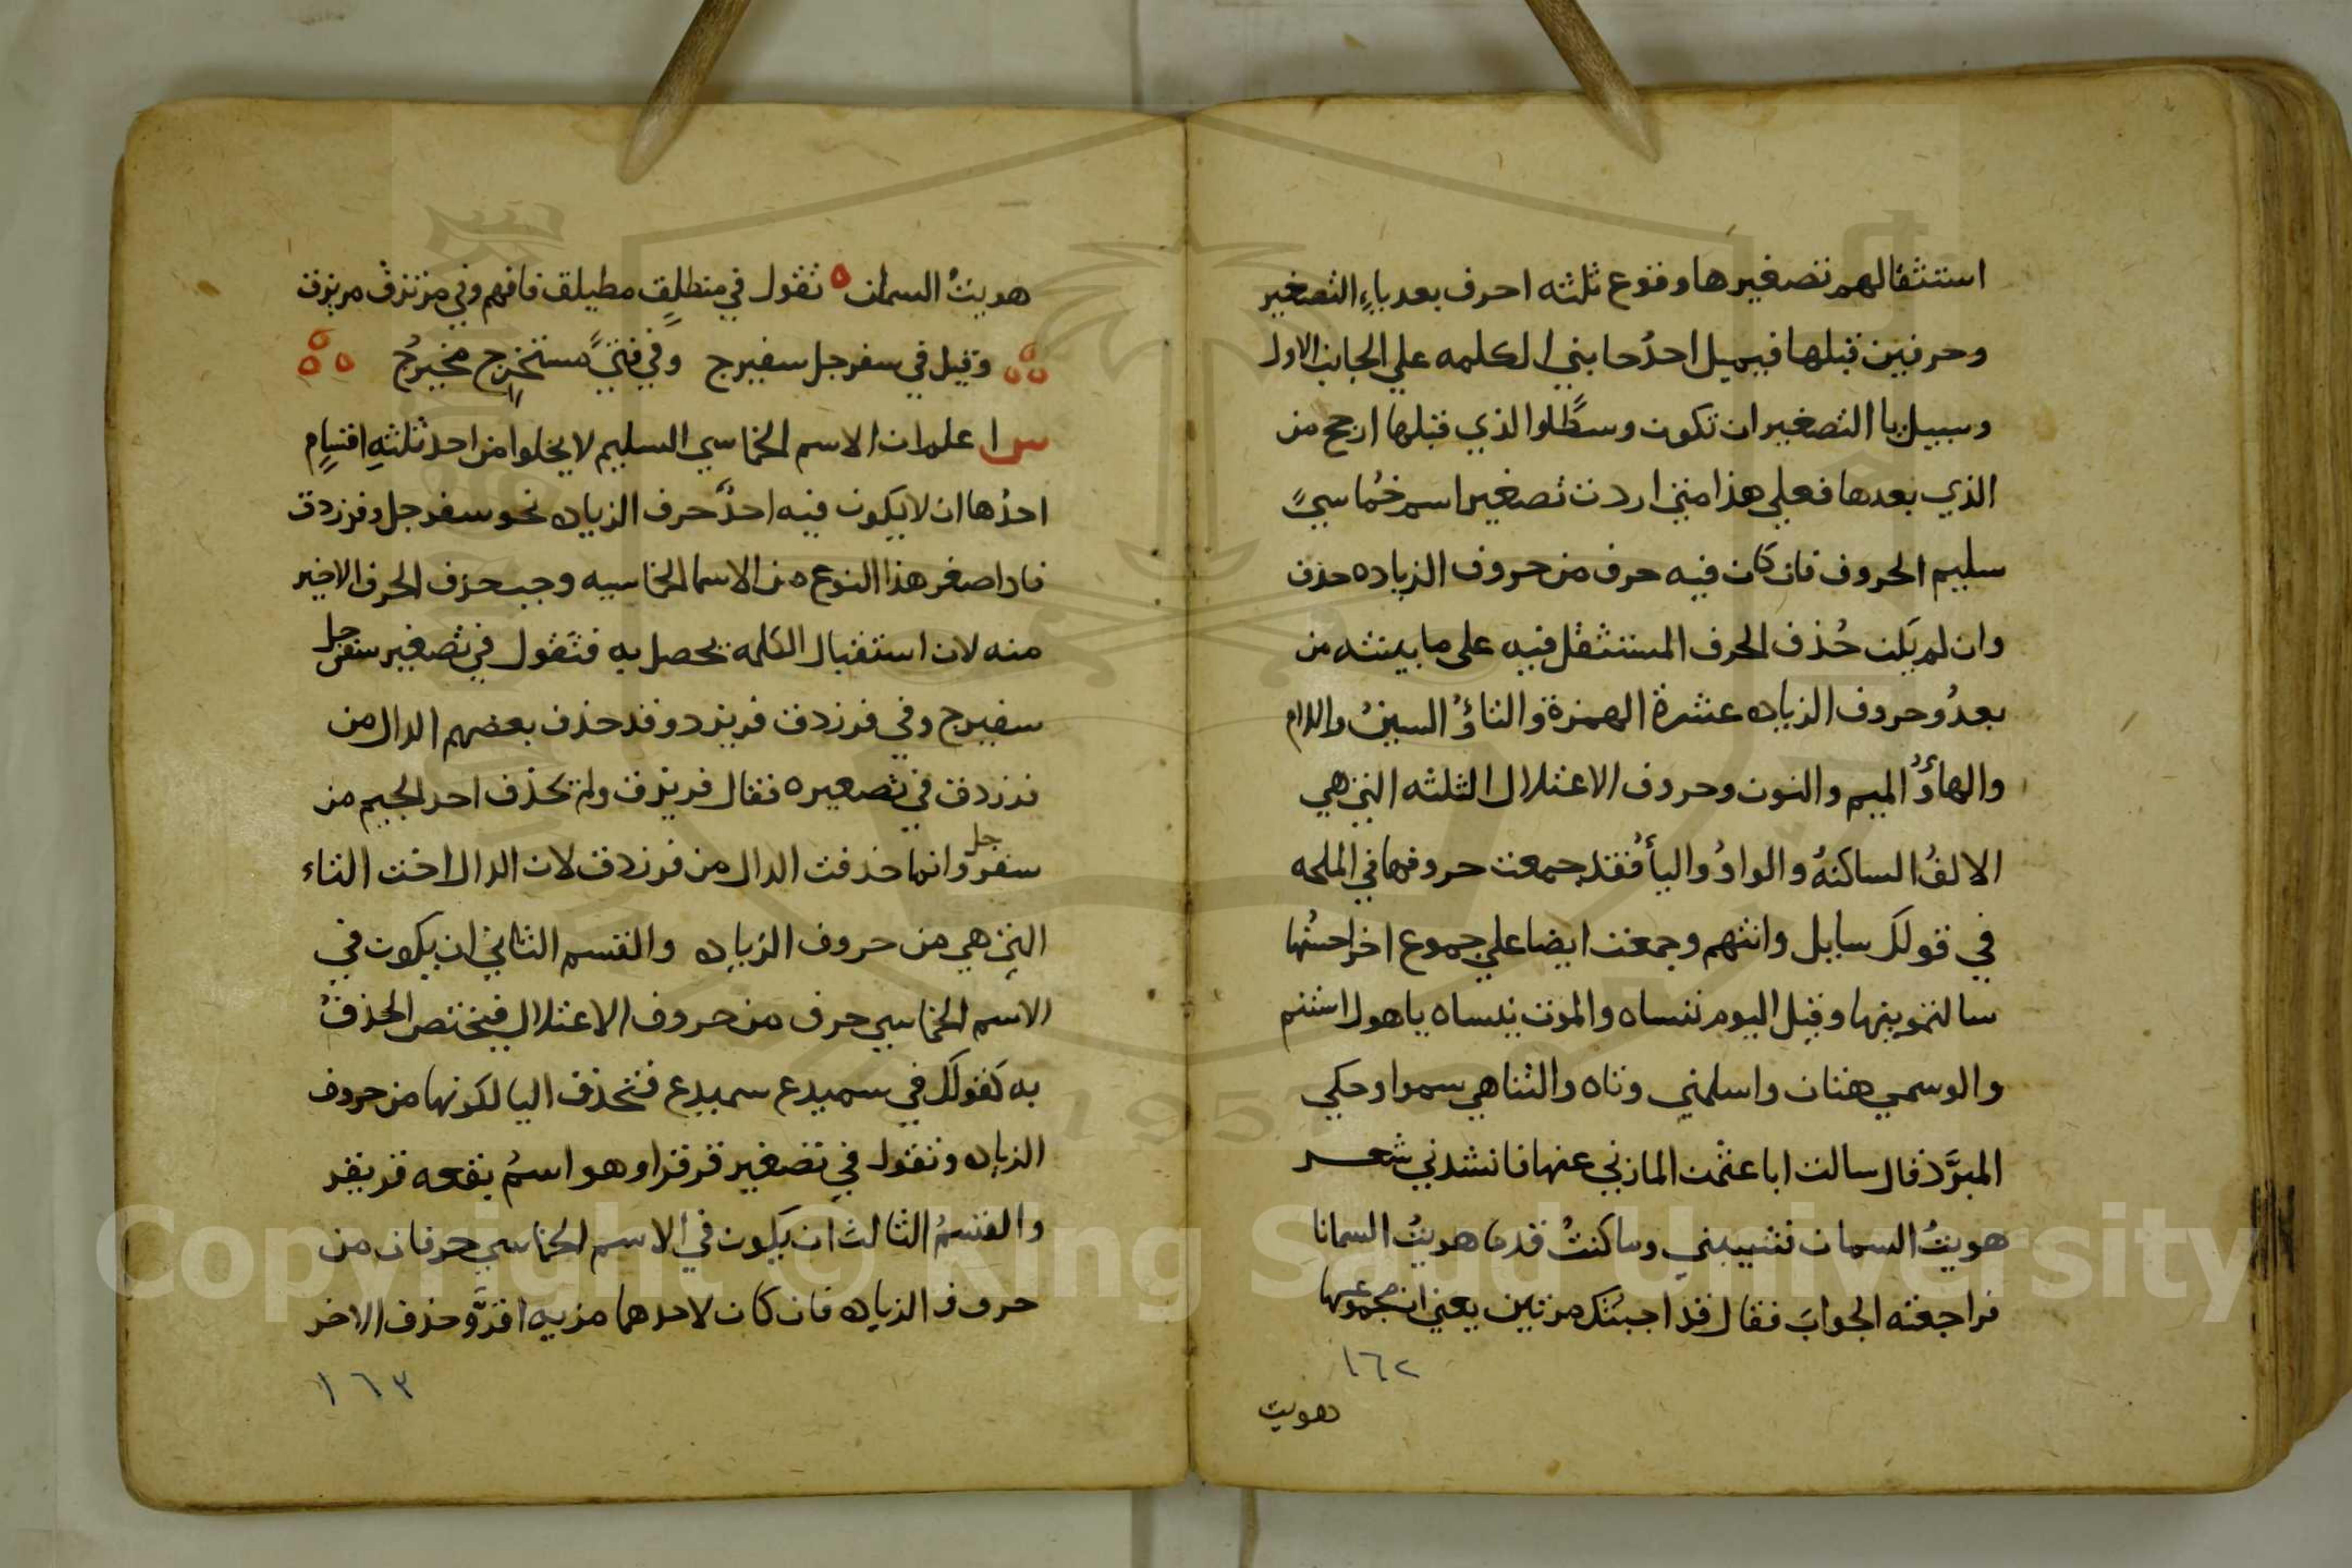 استثقالهم تصغيرها وقوع ثلثه احرف بعد ياءِ التصغير
وحرفين قبلها فيميل احدُ جانبي الكلمه علي الجانب الاول
وسبيل يا التصغير ان تكون وسطًا والذي قبلها ارجح من
الذي بعدها فعلي هذا متي اردت تصغير اسم خُماسيً
سليم الحروف فان كان فيه حرف من حروف الزياده حذف
وان لم يَكن حُذف الحرف المستثقل فيه على ما يبنئه من
بعدُ وحروف الزياده عشرة الهمزة والتاؤُ السينُ واللام
والهاؤُ الميم والنون وحروف الاعتلال الثلثه التي هي
الالفُ الساكنهُ والواوُ واليأ فقد جمعت حروفها في الملحه
في قولك سايل وانتهم وجمعت ايضا علي جموع اخر احسنُها
سالتمونيها وقيل اليوم تنساه والموت ينساه ياهول استنم
والوسمي هتان واسلمني وتاه والتناهي سموا وحكي
المبرَّد قال سالت ابا عثمن المازني عنها فانشدني شعر
هويتُ السمان فشيبنني وما كنتُ قدما هويتُ السمانا
فراجعته الجوابَ فقال قد اجبتُك مرتين يعني ان مجموعها
١٦٢
هويت
هويتُ السمان ٥ تقول في منطلقٍ مطيلق فافهم وفي مرتزق مريزق
وقيل في سفرجل سفيرج وفي فتيً مستخرجٍ مخيرجُ
س اعلم ان الاسم الخماسي السليم لا يخلوا من احد ثلثهِ اقسامٍ
احدُها ان لا يكون فيه احدُ حرف الزياده نحو سفرجل وفرزدق
فاذا صغر هذا النوع من الاسما الخماسيه وجب حذف الحرف الاخير
منه لان استثقال الكلمه يحصل به فتقول في تصغير سفرجل
سفيرج وفي فرزدق فريزد وقد حذف بعضهم الدال من
فرزدق في تصغيره فقال فريزق ولم يحذف احد الجيم من
سفرجل وانما حذفت الدال من فرزدق لان الدال اخت التاء
التي هي من حروف الزياده والقسم الثاني ان يكون في
الاسم الخماسي حرف من حروف الاعتلال فيختص الحذفُ
به كقولك في سميدع سميدع فتحذف اليا لكونها من حروف
الزياده وتقول في تصغير قرقرا وهو اسمُ بقعه قريقر
والقسمُ الثالث ان يكون في الاسم الخماسي حرفان من
حروف الزياده فان كان لاحدهما مزيه اقرَّ وحذف الاخر
١٦٣
Copyright © King Saud University
1957